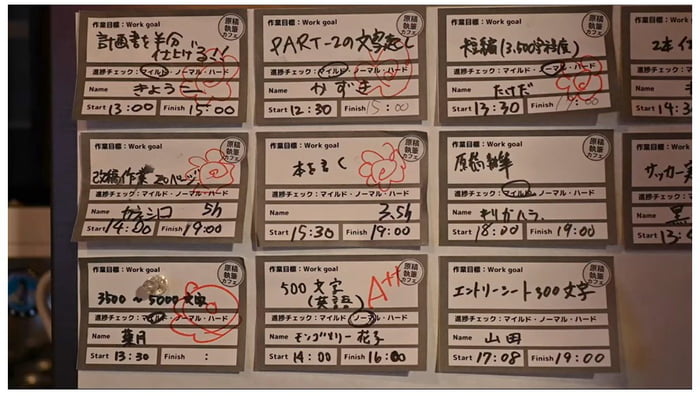 作業目標：Work goal
原稿執筆カフェ
計画書を半分
仕上げる!!
進捗チェック：マイルド・ノーマル・ハード
Name きょうこ
Start 13:00 Finish 15:00
作業目標：Work goal
原稿執筆カフェ
PART-2の文字起こし
進捗チェック：マイルド・ノーマル・ハード
Name かずき
Start 12:30 Finish 15:00
作業目標：Work goal
原稿執筆カフェ
短編(3,500字程度)
進捗チェック：マイルド・ノーマル・ハード
Name たけだ
Start 13:30 Finish 17:00
作業目標
2本
進捗チェック
Name
Start
作業目標：Work goal
原稿執筆カフェ
改稿作業
進捗チェック：マイルド・ノーマル・ハード
Name カネシコ 5h
Start 14:00 Finish 19:00
作業目標：Work goal
原稿執筆カフェ
本を書く
進捗チェック：マイルド・ノーマル・ハード
Name 3.5h
Start 15:30 Finish 19:00
作業目標：Work goal
原稿執筆カフェ
原稿執筆
進捗チェック：マイルド・ノーマル・ハード
Name
Start 18:00 Finish 19:00
作業目標
サッカー
進捗チェック
Name
Start
作業目標：Work goal
原稿執筆カフェ
3500～5000文字
進捗チェック：マイルド・ノーマル・ハード
Name 葉月
Start 13:30 Finish :
作業目標：Work goal
原稿執筆カフェ
500文字
(英語)
A++
進捗チェック：マイルド・ノーマル・ハード
Name モンゴメリー花子
Start 14:00 Finish 16:00
作業目標：Work goal
原稿執筆カフェ
エントリーシート300文字
進捗チェック：マイルド・ノーマル・ハード
Name 山田
Start 17:08 Finish 19:00